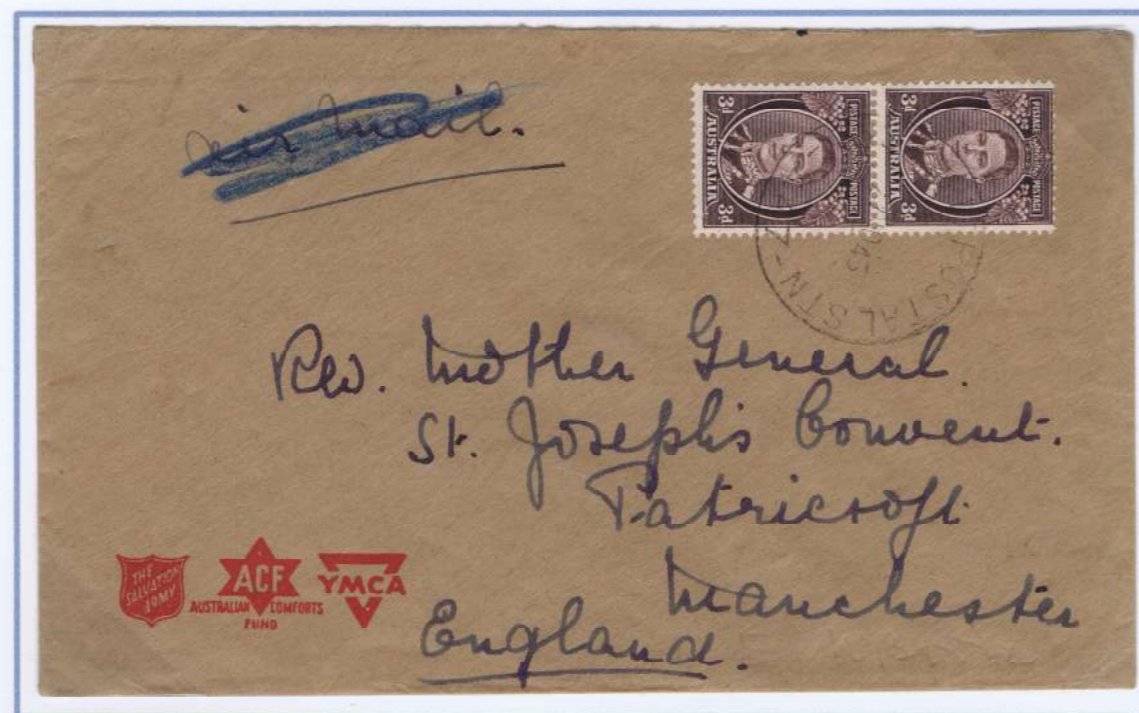 air mail.
POSTAGE POSTAGE
3d AUSTRALIA 3d
POSTAGE POSTAGE
3d AUSTRALIA 3d
POSTAL STN
Rev. Mother General.
St. Joseph's Convent.
Patricroft
Manchester
England.
THE SALVATION ARMY
ACF
AUSTRALIAN COMFORTS
FUND
YMCA